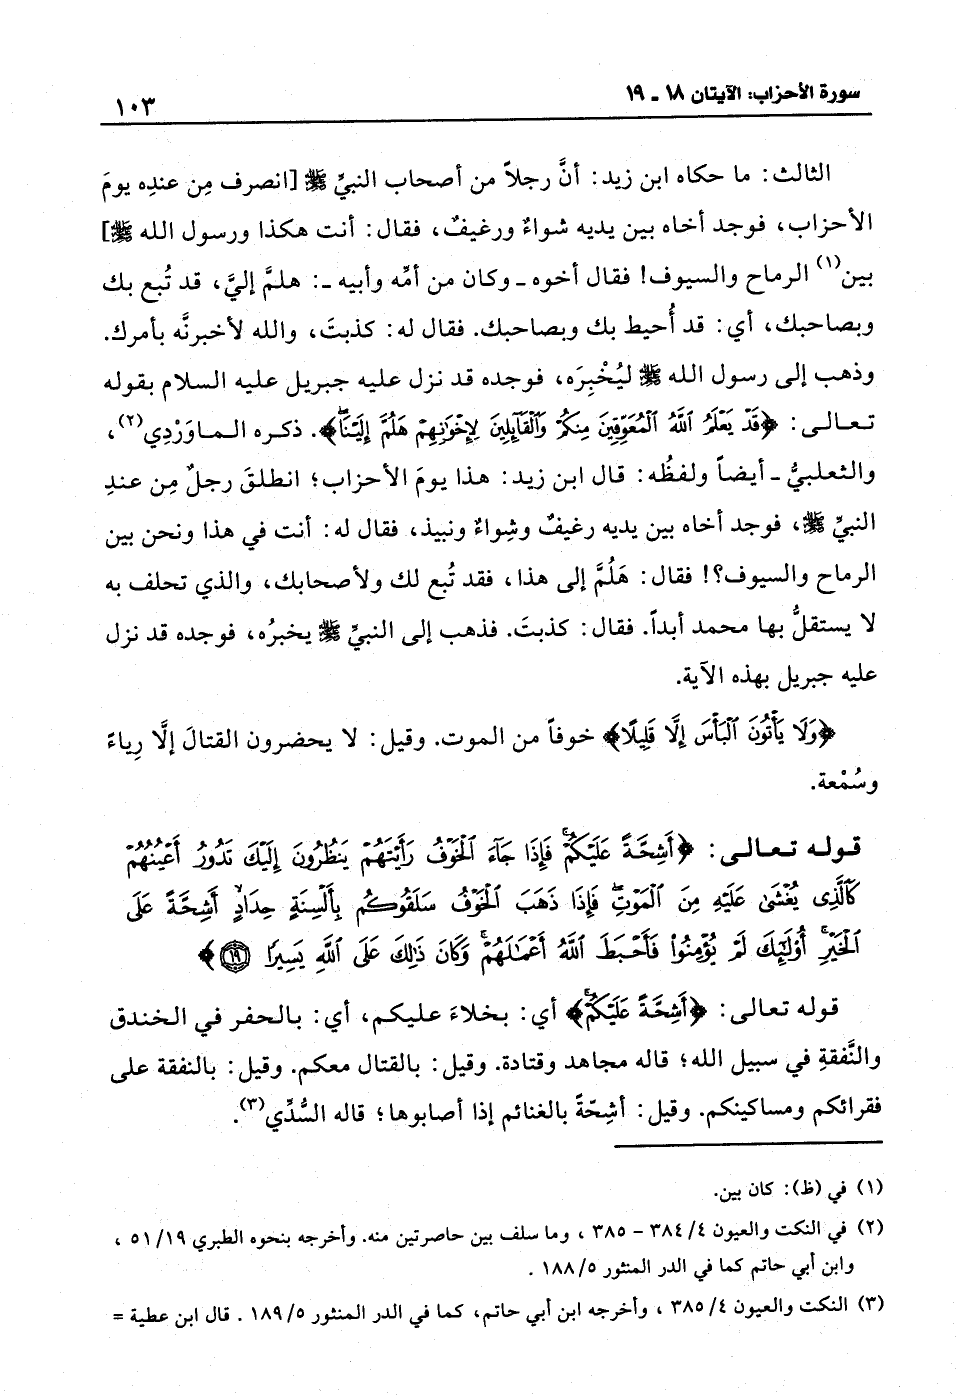 سورة الأحزاب: الآيتان ١٨ ـ ١٩
١٠٣
الثالث: ما حكاه ابن زيد: أنَّ رجلاً من أصحاب النبيِّ ﷺ [انصرف مِن عندِه يومَ
الأحزاب، فوجد أخاه بين يديه شواءٌ ورغيفٌ، فقال: أنت هكذا ورسول الله ﷺ]
بين(١) الرماح والسيوف! فقال أخوه ـ وكان من أمِّه وأبيه ـ: هلمَّ إليَّ، قد تُبع بك
وبصاحبك، أي: قد أُحيط بك وبصاحبك. فقال له: كذبتَ، والله لأخبرنَّه بأمرك.
وذهب إلى رسول الله ﷺ ليُخْبِرَه، فوجده قد نزل عليه جبريل عليه السلام بقوله
تعالى: ﴿قَدْ يَعْلَمُ ٱللَّهُ ٱلْمُعَوِّقِينَ مِنكُمْ وَٱلْقَآئِلِينَ لِإِخْوَٰنِهِمْ هَلُمَّ إِلَيْنَاۖ﴾. ذكره الماوَرْدِي(٢)،
والثعلبيُّ ـ أيضاً ولفظُه: قال ابن زيد: هذا يومَ الأحزاب؛ انطلقَ رجلٌ مِن عندِ
النبيِّ ﷺ، فوجد أخاه بين يديه رغيفٌ وشِواءٌ ونبيذ، فقال له: أنت في هذا ونحن بين
الرماح والسيوف؟! فقال: هَلُمَّ إلى هذا، فقد تُبع لك ولأصحابك، والذي تحلف به
لا يستقلُّ بها محمد أبداً. فقال: كذبتَ. فذهب إلى النبيِّ ﷺ يخبرُه، فوجده قد نزل
عليه جبريل بهذه الآية.
﴿وَلَا يَأْتُونَ ٱلْبَأْسَ إِلَّا قَلِيلًا﴾ خوفاً من الموت. وقيل: لا يحضرون القتالَ إلَّا رِياءً
وسُمْعة.
قوله تعالى: ﴿أَشِحَّةً عَلَيْكُمْۖ فَإِذَا جَآءَ ٱلْخَوْفُ رَأَيْتَهُمْ يَنظُرُونَ إِلَيْكَ تَدُورُ أَعْيُنُهُمْ
كَٱلَّذِى يُغْشَىٰ عَلَيْهِ مِنَ ٱلْمَوْتِۖ فَإِذَا ذَهَبَ ٱلْخَوْفُ سَلَقُوكُم بِأَلْسِنَةٍ حِدَادٍ أَشِحَّةً عَلَى
ٱلْخَيْرِۚ أُو۟لَٰٓئِكَ لَمْ يُؤْمِنُوا۟ فَأَحْبَطَ ٱللَّهُ أَعْمَٰلَهُمْۚ وَكَانَ ذَٰلِكَ عَلَى ٱللَّهِ يَسِيرًا ۝١٩﴾
قوله تعالى: ﴿أَشِحَّةً عَلَيْكُمْۖ﴾ أي: بخلاءَ عليكم، أي: بالحفر في الخندق
والنَّفقةِ في سبيل الله؛ قاله مجاهد وقتادة. وقيل: بالقتال معكم. وقيل: بالنفقة على
فقرائكم ومساكينكم. وقيل: أشِحّةً بالغنائم إذا أصابوها؛ قاله السُّدِّي(٣).
(١) في (ظ): كان بين.
(٢) في النكت والعيون ٤/ ٣٨٤ - ٣٨٥ ، وما سلف بين حاصرتين منه. وأخرجه بنحوه الطبري ١٩/ ٥١ ،
وابن أبي حاتم كما في الدر المنثور ٥/ ١٨٨ .
(٣) النكت والعيون ٤/ ٣٨٥ ، وأخرجه ابن أبي حاتم، كما في الدر المنثور ٥/ ١٨٩ . قال ابن عطية =